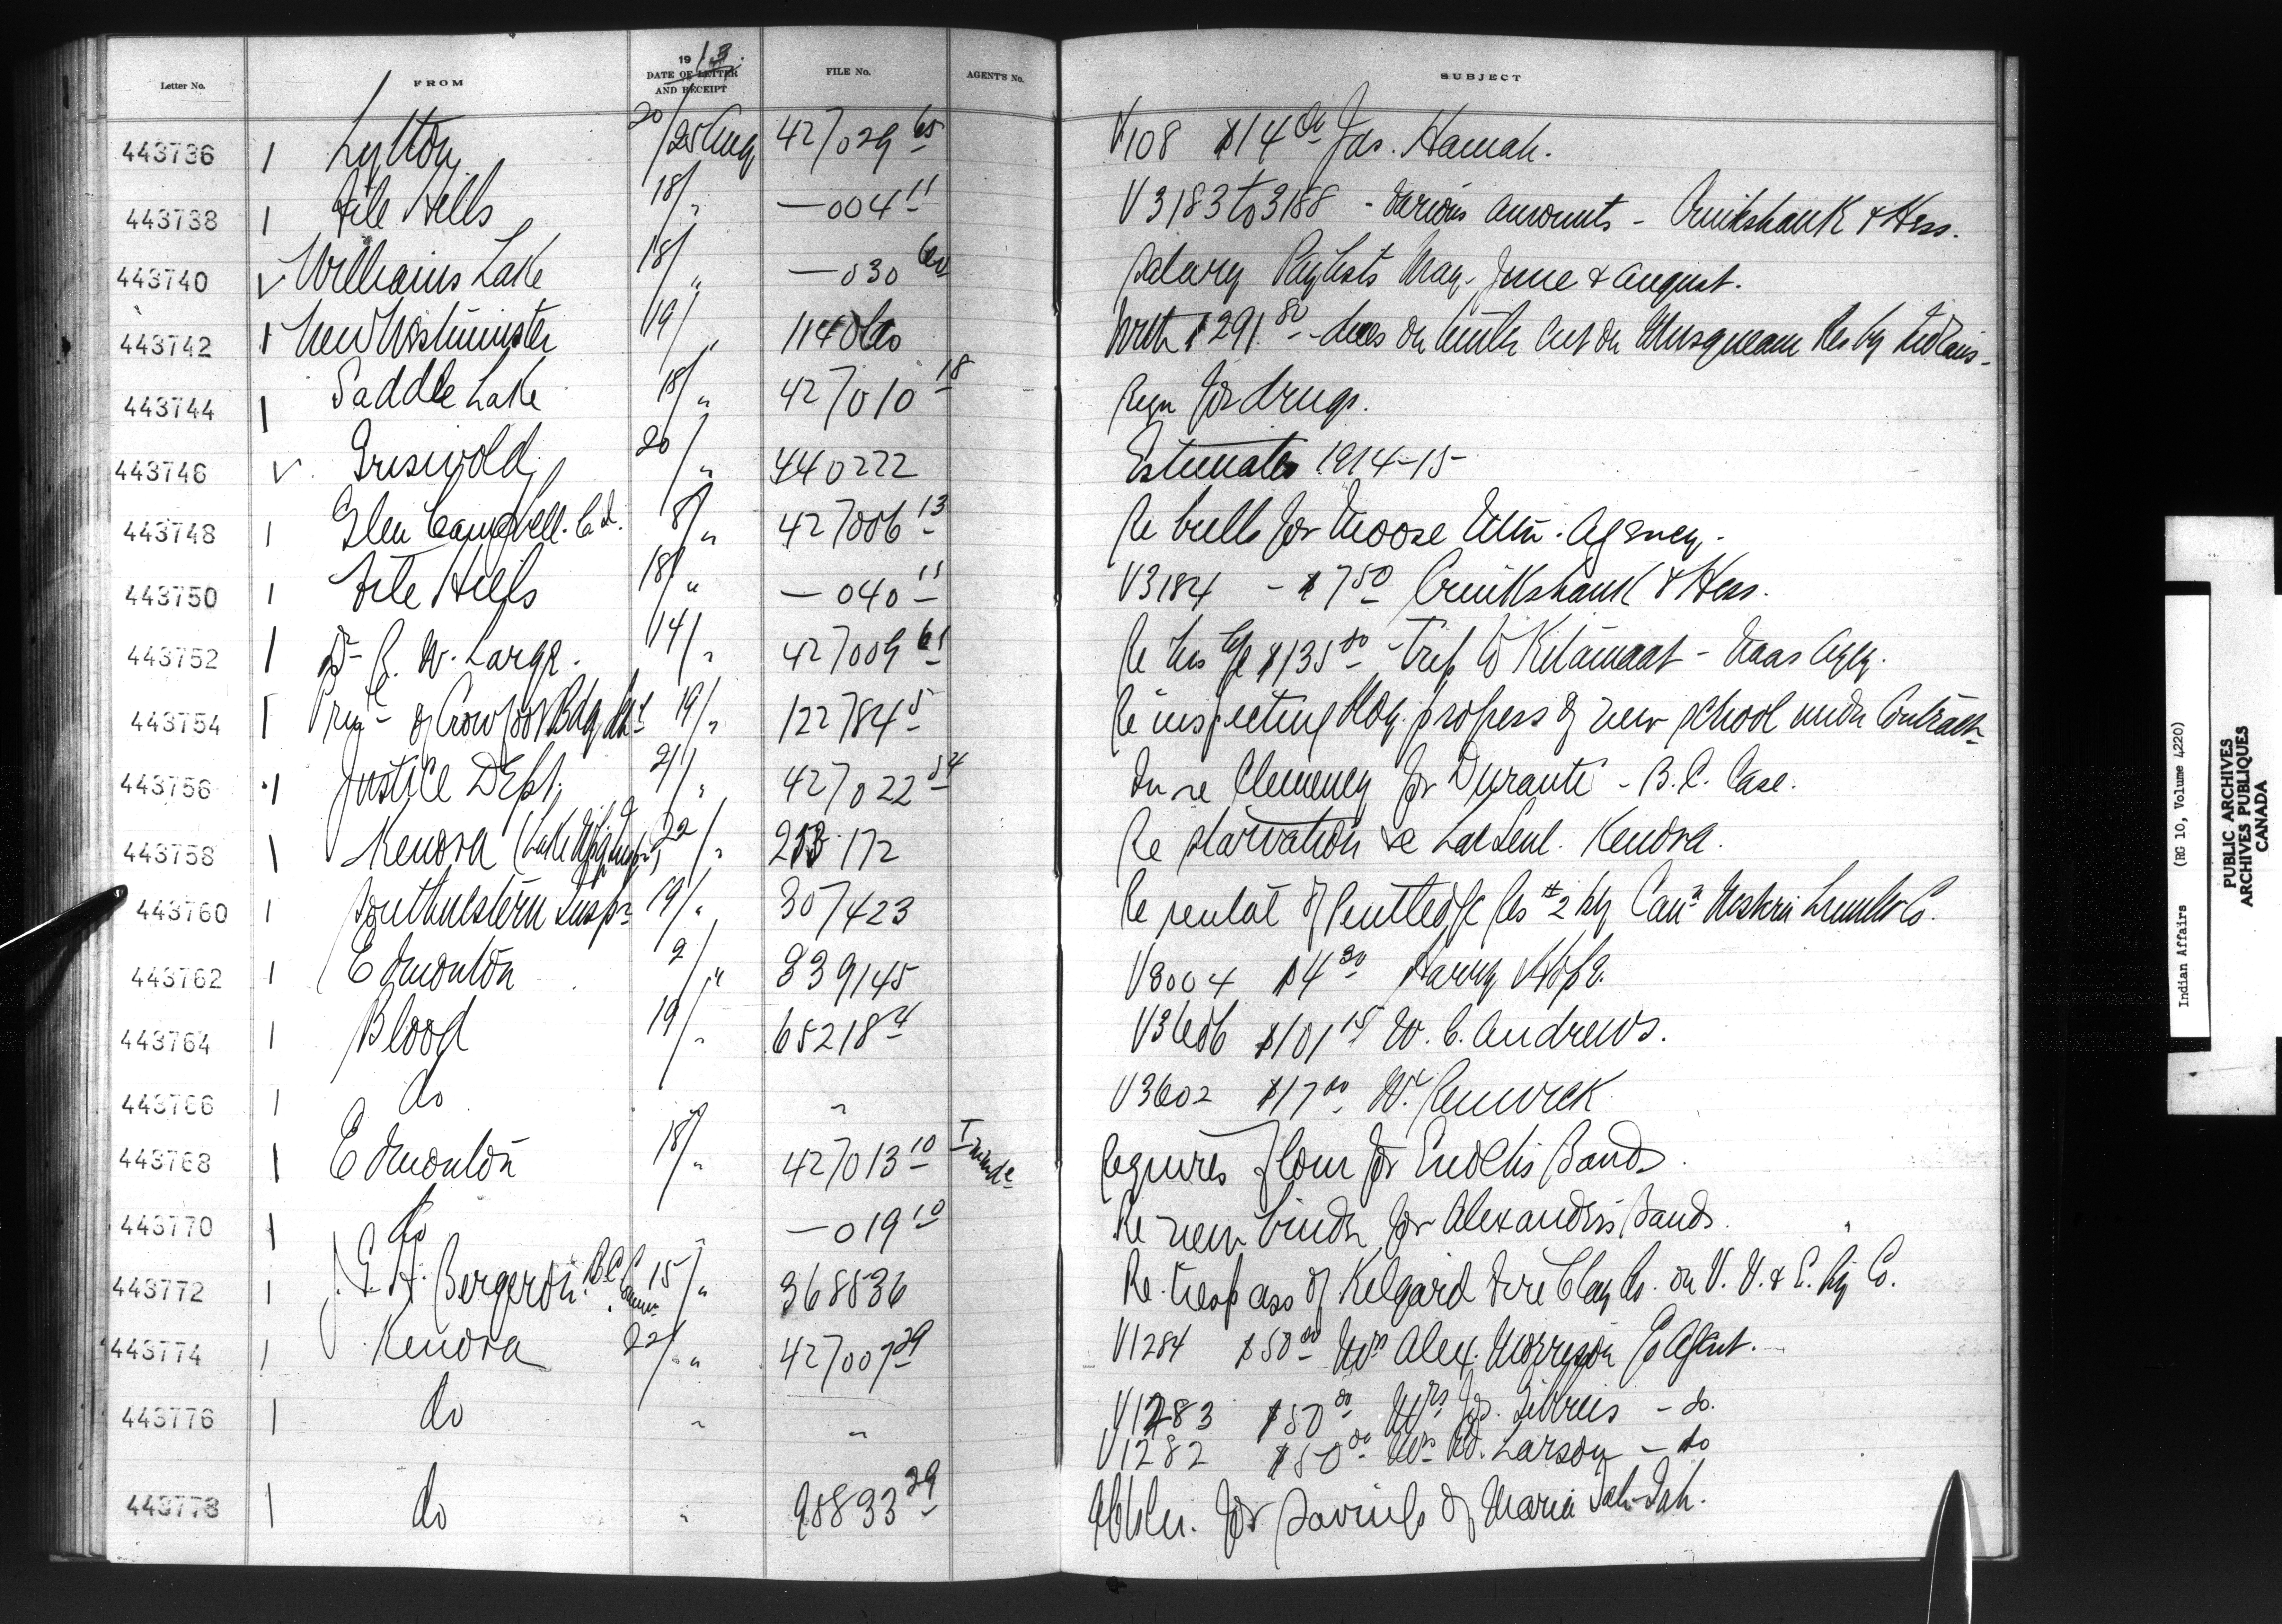 Letter No. FROM 1913. DATE OF LETTER AND RECEIPT FILE No. AGENT'S No. SUBJECT
443736 1 Lytton 20/25 Aug 427029 65 V108 $14 00 Jas. Hamah.
443738 1 File Hills 18/" —004 11 V3183 to 3188 - Various amounts - Cruikshank & Hess.
443740 ✓ Williams Lake 18/" —030 Salary Paylists May, June & August.
443742 1 New Westminster 19/" With $291 80 - dues on timber cut on Musqueam Res by Indians -
443744 1 Saddle Lake 18/" 427010 18 Reqn for drugs.
443746 ✓ Griswold 20/" 440222 Estimates 1914-15
443748 1 Glen Campbell. C.I. 8/" 427006 13 Re bulls for Moose Mtn. Agency.
443750 1 File Hills 18/" —040 11 V3184 - $7 50 Cruikshank & Hess.
443752 1 Dr R. W. Large. 14/" 427009 61 Re his a/c $135 80 - trip to Kitamaat - Naas Agcy.
443754 1 Prin of Crowfoot Bdg Schl 19/" 122784 5 Re inspecting bldg. progress of new school under Contract
443756 1 Justice Dept. 21/" 427022 54 In re Clemency for Durante - B.C. Case.
443758 1 Kenora (Lake Wpg Inspr) 22/" 172 Re starvation &c Lac Seul. Kenora.
443760 1 Southwestern Inspr 19/" 307423 Re rental of Puntledge Res #2 by Cann Western Lumber Co.
443762 1 Edmonton 9/" 339145 V3004 $4 Harry Hope.
443764 1 Blood 19/" 65218 4 V3606 $101 15 W. C. Andrews.
443766 1 do " V3602 $17 00 Renwick
443768 1 Edmonton 18/" 427013 10 Immde Requires flour for Enoch's Band.
443770 1 do " —019 10 Re new binder for Alexander's Band.
443772 1 J. G. H. Bergeron. B.C. Commr. 15/" 368536 Re trespass of Kilgard Fire Clay Co. on V. V. & E. Ry Co.
443774 1 Kenora 22/" 427007 29 V1284 $50 00 Mrs Alex. Morrison p Agent.
443776 1 do " " V1283 $50 00 Mrs Jos. - do.
V1282 $50 00 Mrs Larson - do
443778 1 do " 90833 29 for Savings of Maria
Indian Affairs (RG 10, Volume 4220)
PUBLIC ARCHIVES
ARCHIVES PUBLIQUES
CANADA